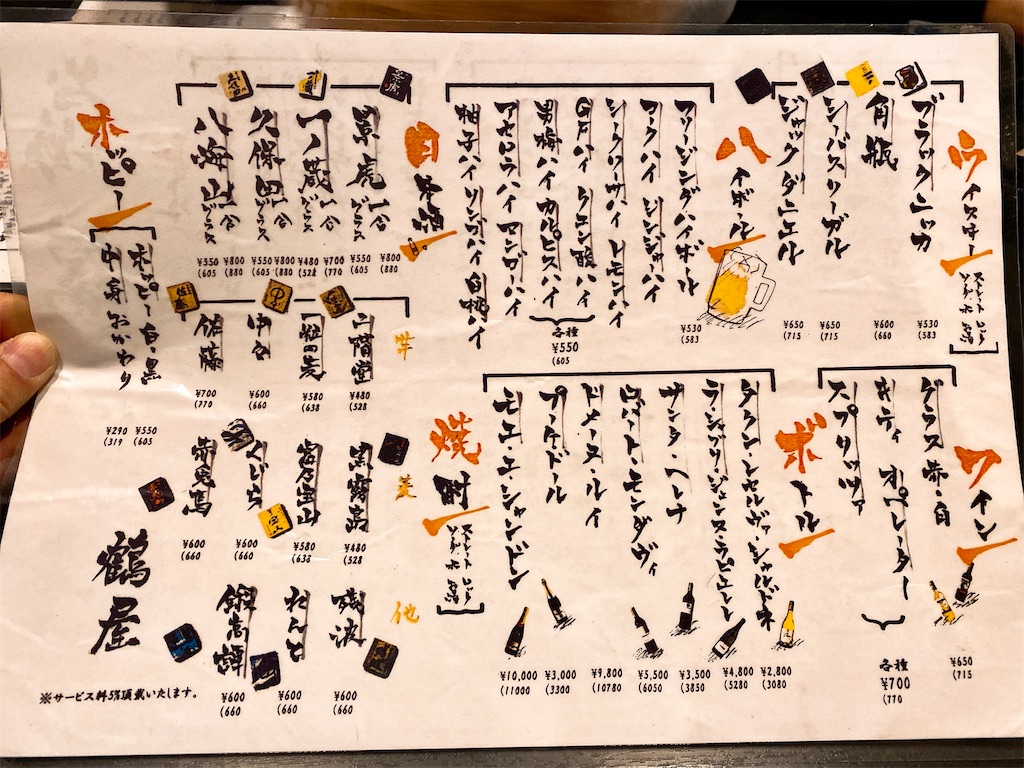 ウイスキー
ストレート ロック
ソーダ 水 お湯
ブラックニッカ
¥530
(583
角瓶
¥600
(660
シーバスリーガル
¥650
(715
ジャックダニエル
¥650
(715
ハイボール
フリージングハイボール
¥530
(583
コクハイ ジンジャーハイ
シークワサハイ レモンハイ
GFハイ クエン酸ハイ
男梅ハイ カルピスハイ
アセロラハイ マンゴーハイ
柚子ハイ リンゴハイ 白桃ハイ
各種
¥550
(605
日本酒
景虎 一合 グラス
¥800
(880
¥550
(605
一ノ蔵 一合 グラス
¥700
(770
¥480
(528
久保田 一合 グラス
¥800
(880
¥550
(605
八海山 一合 グラス
¥800
(880
¥550
(605
ホッピー
ホッピー 白・黒
¥550
(605
中身おかわり
¥290
(319
ワイン
グラス 赤・白
¥650
(715
キティ オペレーター
スプリッツァ
各種
¥700
(770
ボトル
タウン・セルヴァ・シャルドネ
¥2,800
(3080
ラシャブリジェンヌ・ラピエレレ
¥4,800
(5280
サンタ・ヘレナ
¥3,500
(3850
ロバートモンダヴィ
¥5,500
(6050
ドメーヌ・ルイ
¥9,800
(10780
ブーケドール
¥3,000
(3300
モエ・エ・シャンドン
¥10,000
(11000
焼酎
ストレート ロック
ソーダ 水 お湯
芋
二階堂
¥480
(528
¥580
(638
中々
¥600
(660
佐藤
¥700
(770
黒霧島
¥480
(528
富乃宝山
¥580
(638
くじら
¥600
(660
赤兎馬
¥600
(660
他
残波
¥600
(660
れんと
¥600
(660
鍛高譚
¥600
(660
鶴屋
※サービス料5%頂戴いたします。